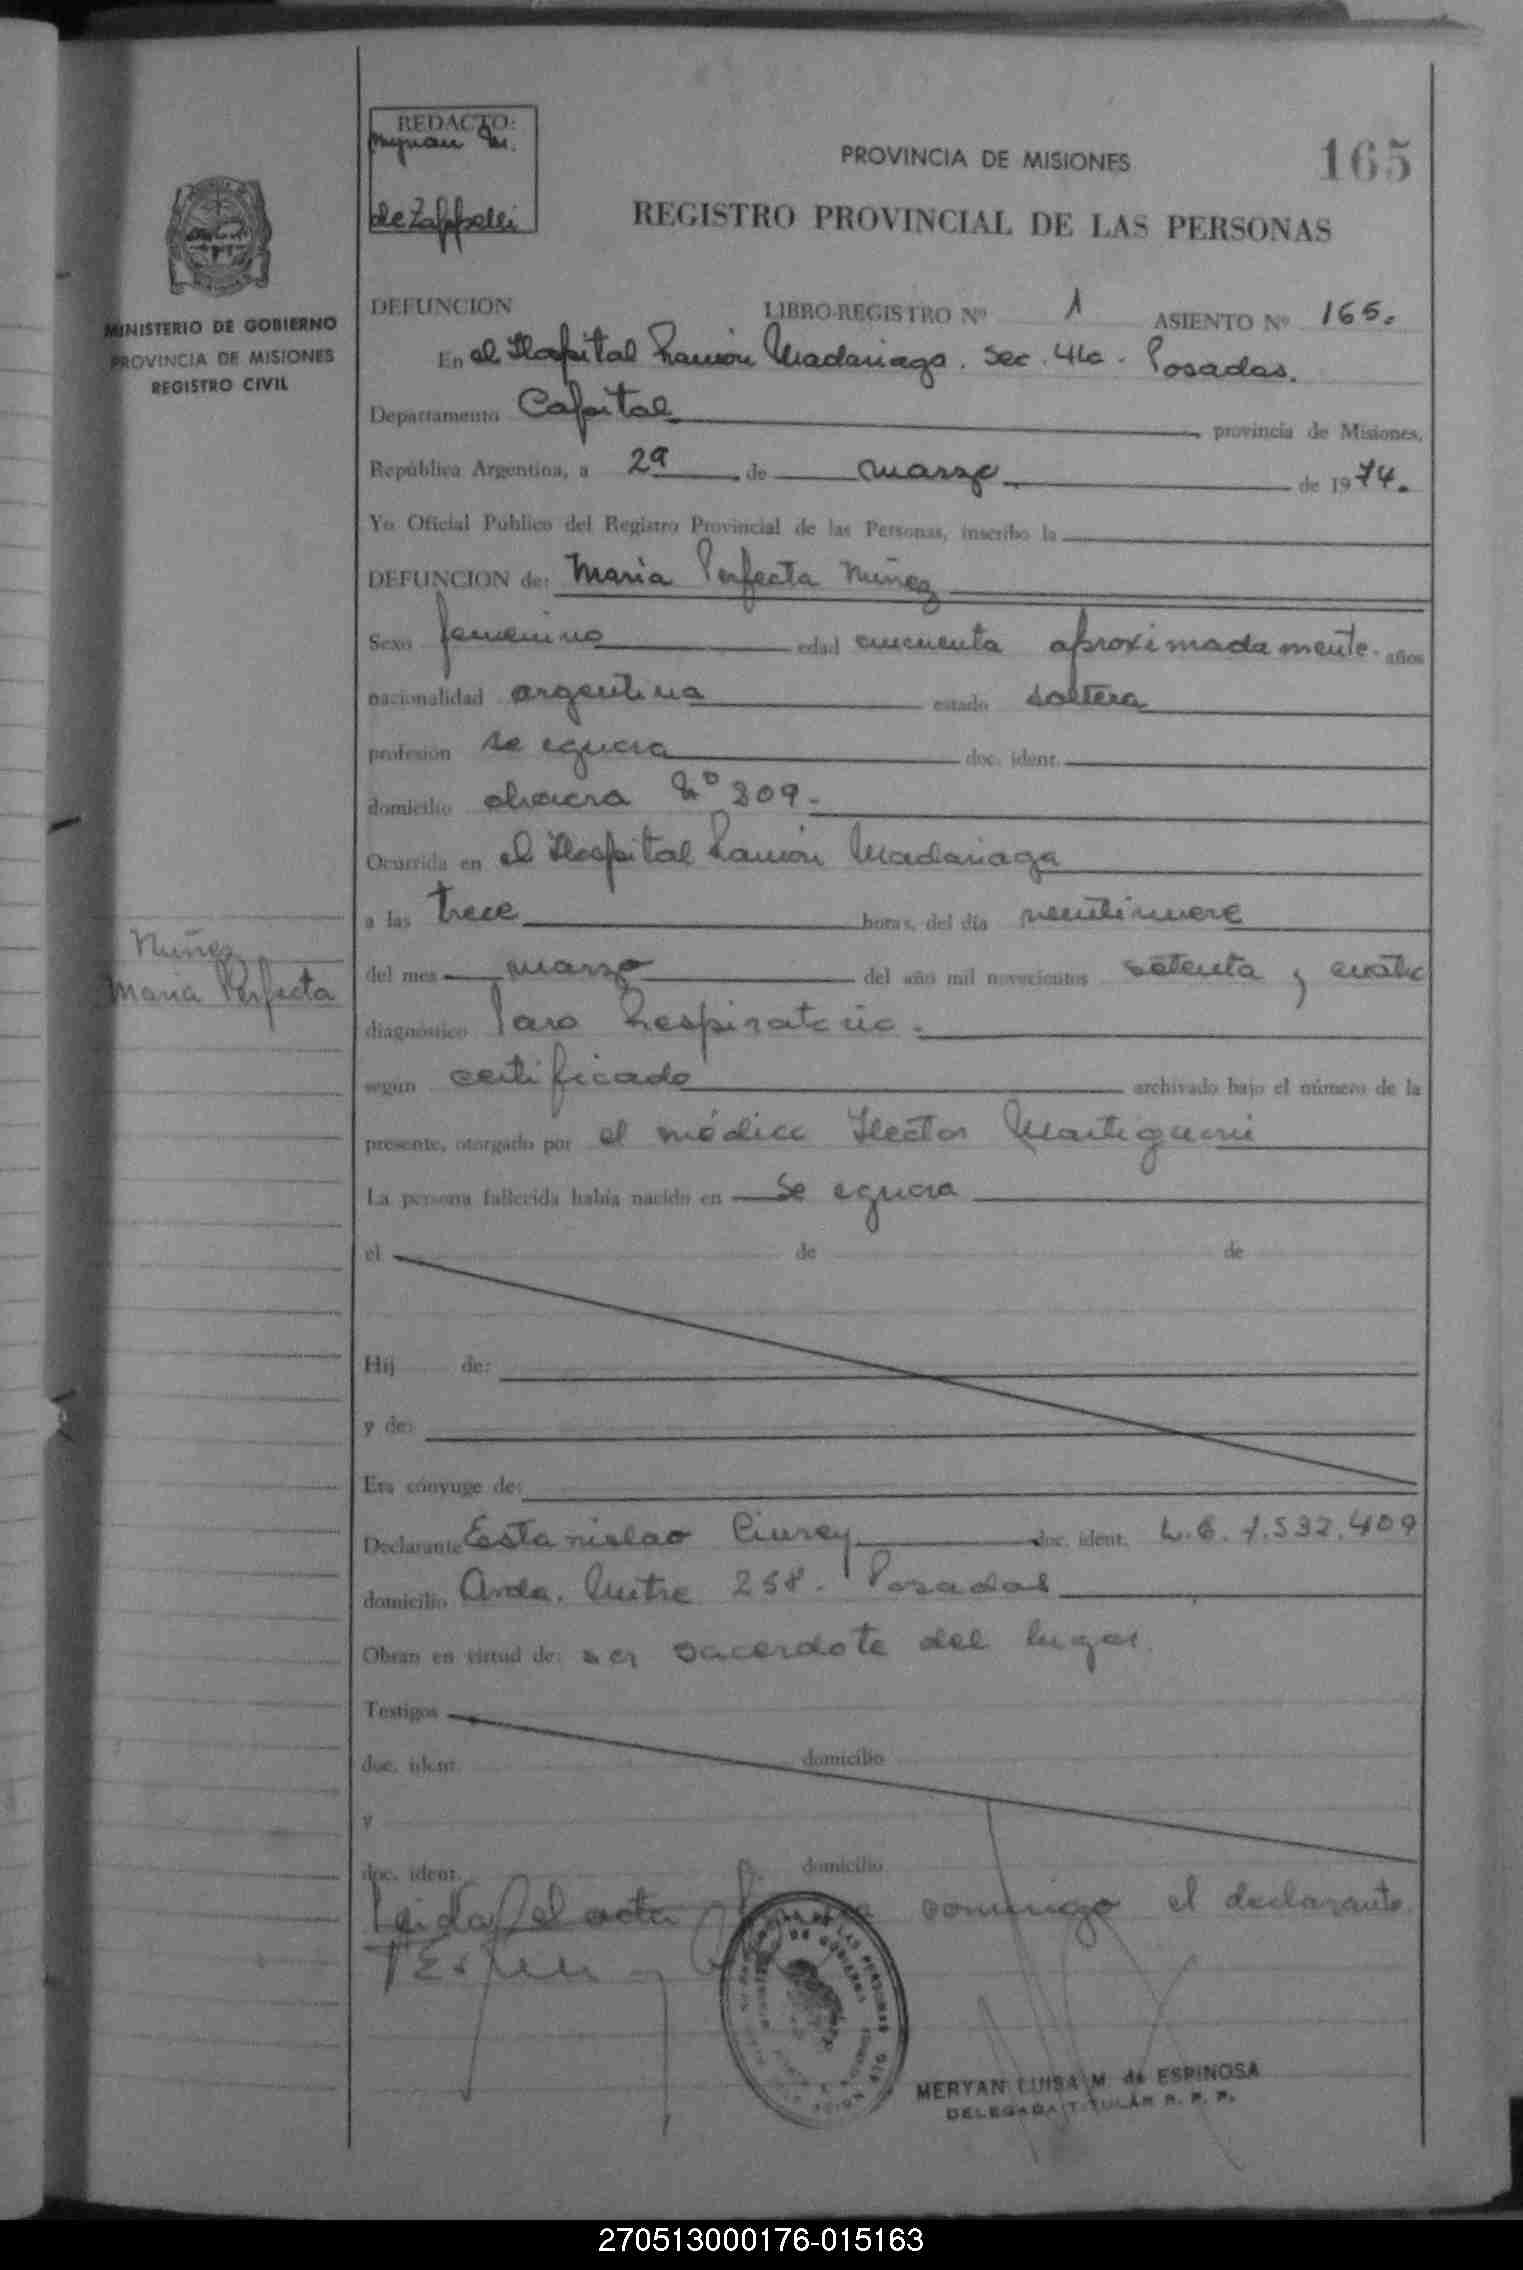 REDACTO:
Meryan M.
de Zappelli
PROVINCIA DE MISIONES
165
REGISTRO PROVINCIAL DE LAS PERSONAS
MINISTERIO DE GOBIERNO
PROVINCIA DE MISIONES
REGISTRO CIVIL
DEFUNCION LIBRO-REGISTRO Nº 1 ASIENTO Nº 165.
En el Hospital Ramón Madariaga. Sec. 4ta. Posadas.
Departamento Capital provincia de Misiones,
República Argentina, a 29 de marzo de 1974.
Yo Oficial Público del Registro Provincial de las Personas, inscribo la
DEFUNCION de: Maria Perfecta Nuñez
Sexo femenino edad cincuenta aproximadamente. años
nacionalidad argentina estado soltera
profesión se ignora doc. ident.
domicilio chacra Nº 209.
Ocurrida en el Hospital Ramón Madariaga
a las trece horas, del día veintinueve
Nuñez
Maria Perfecta
del mes marzo del año mil novecientos setenta y cuatro
diagnóstico Paro Respiratorio.
según certificado archivado bajo el número de la
presente, otorgado por el médico Hector
La persona fallecida había nacido en Se ignora
el de de
Hij de:
y de:
Era cónyuge de:
Declarante Estanislao doc. ident. L.E. 7.532.409
domicilio Avda. Mitre 258. Posadas
Obran en virtud de: ser sacerdote del lugar.
Testigos
doc. ident. domicilio
y
doc. ident. domicilio
Leida el acta conmigo el declarante.
MERYAN LUISA M. de ESPINOSA
DELEGADA TITULAR R. P. P.
270513000176-015163